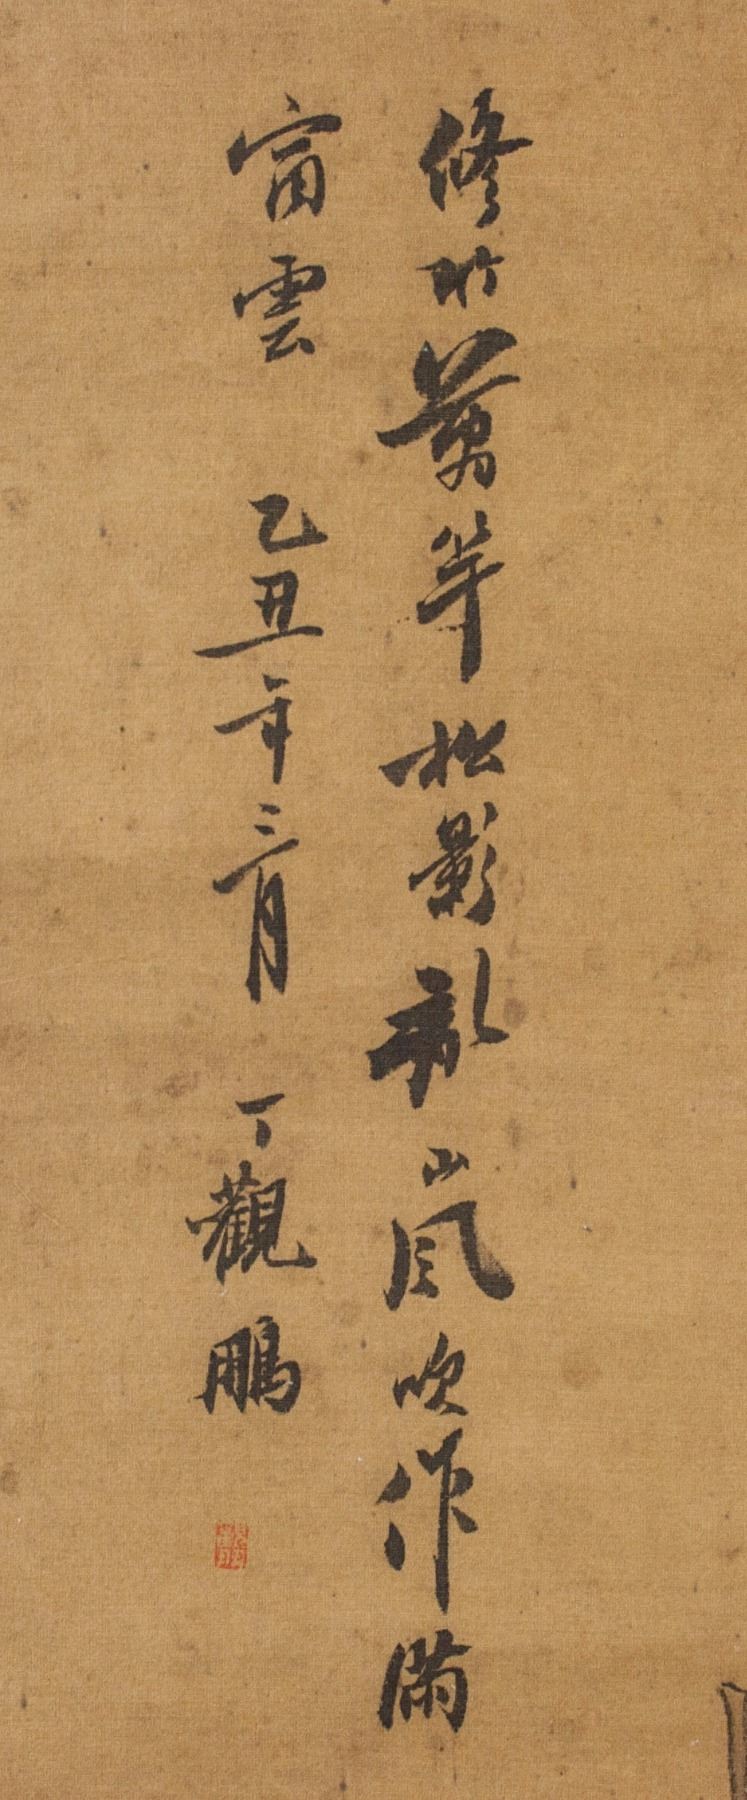 修竹萬竿松影亂山風吹作滿
窗雲 乙丑年三月 丁觀鵬